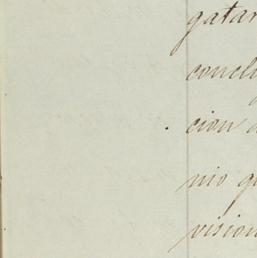 gatar
concl
cion
nio q
vision